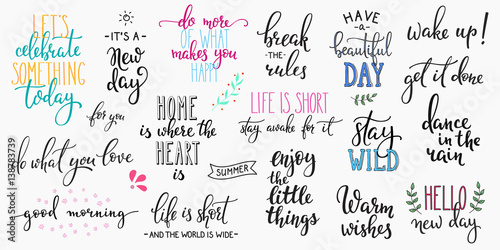 LET'S
celebrate
SOMETHING
today
-IT'S A-
New
day
do more
OF WHAT
makes you
HAPPY
break
-THE-
rules
HAVE
a
beautiful
DAY
wake up!
get it done
for you
HOME
is where the
HEART
is
LIFE IS SHORT
stay awake for it
stay
WILD
dance
in the
rain
do what you love
SUMMER
enjoy
the
little
things
good morning
life is short
-AND THE WORLD IS WIDE-
Warm
wishes
HELLO
new day
138783739